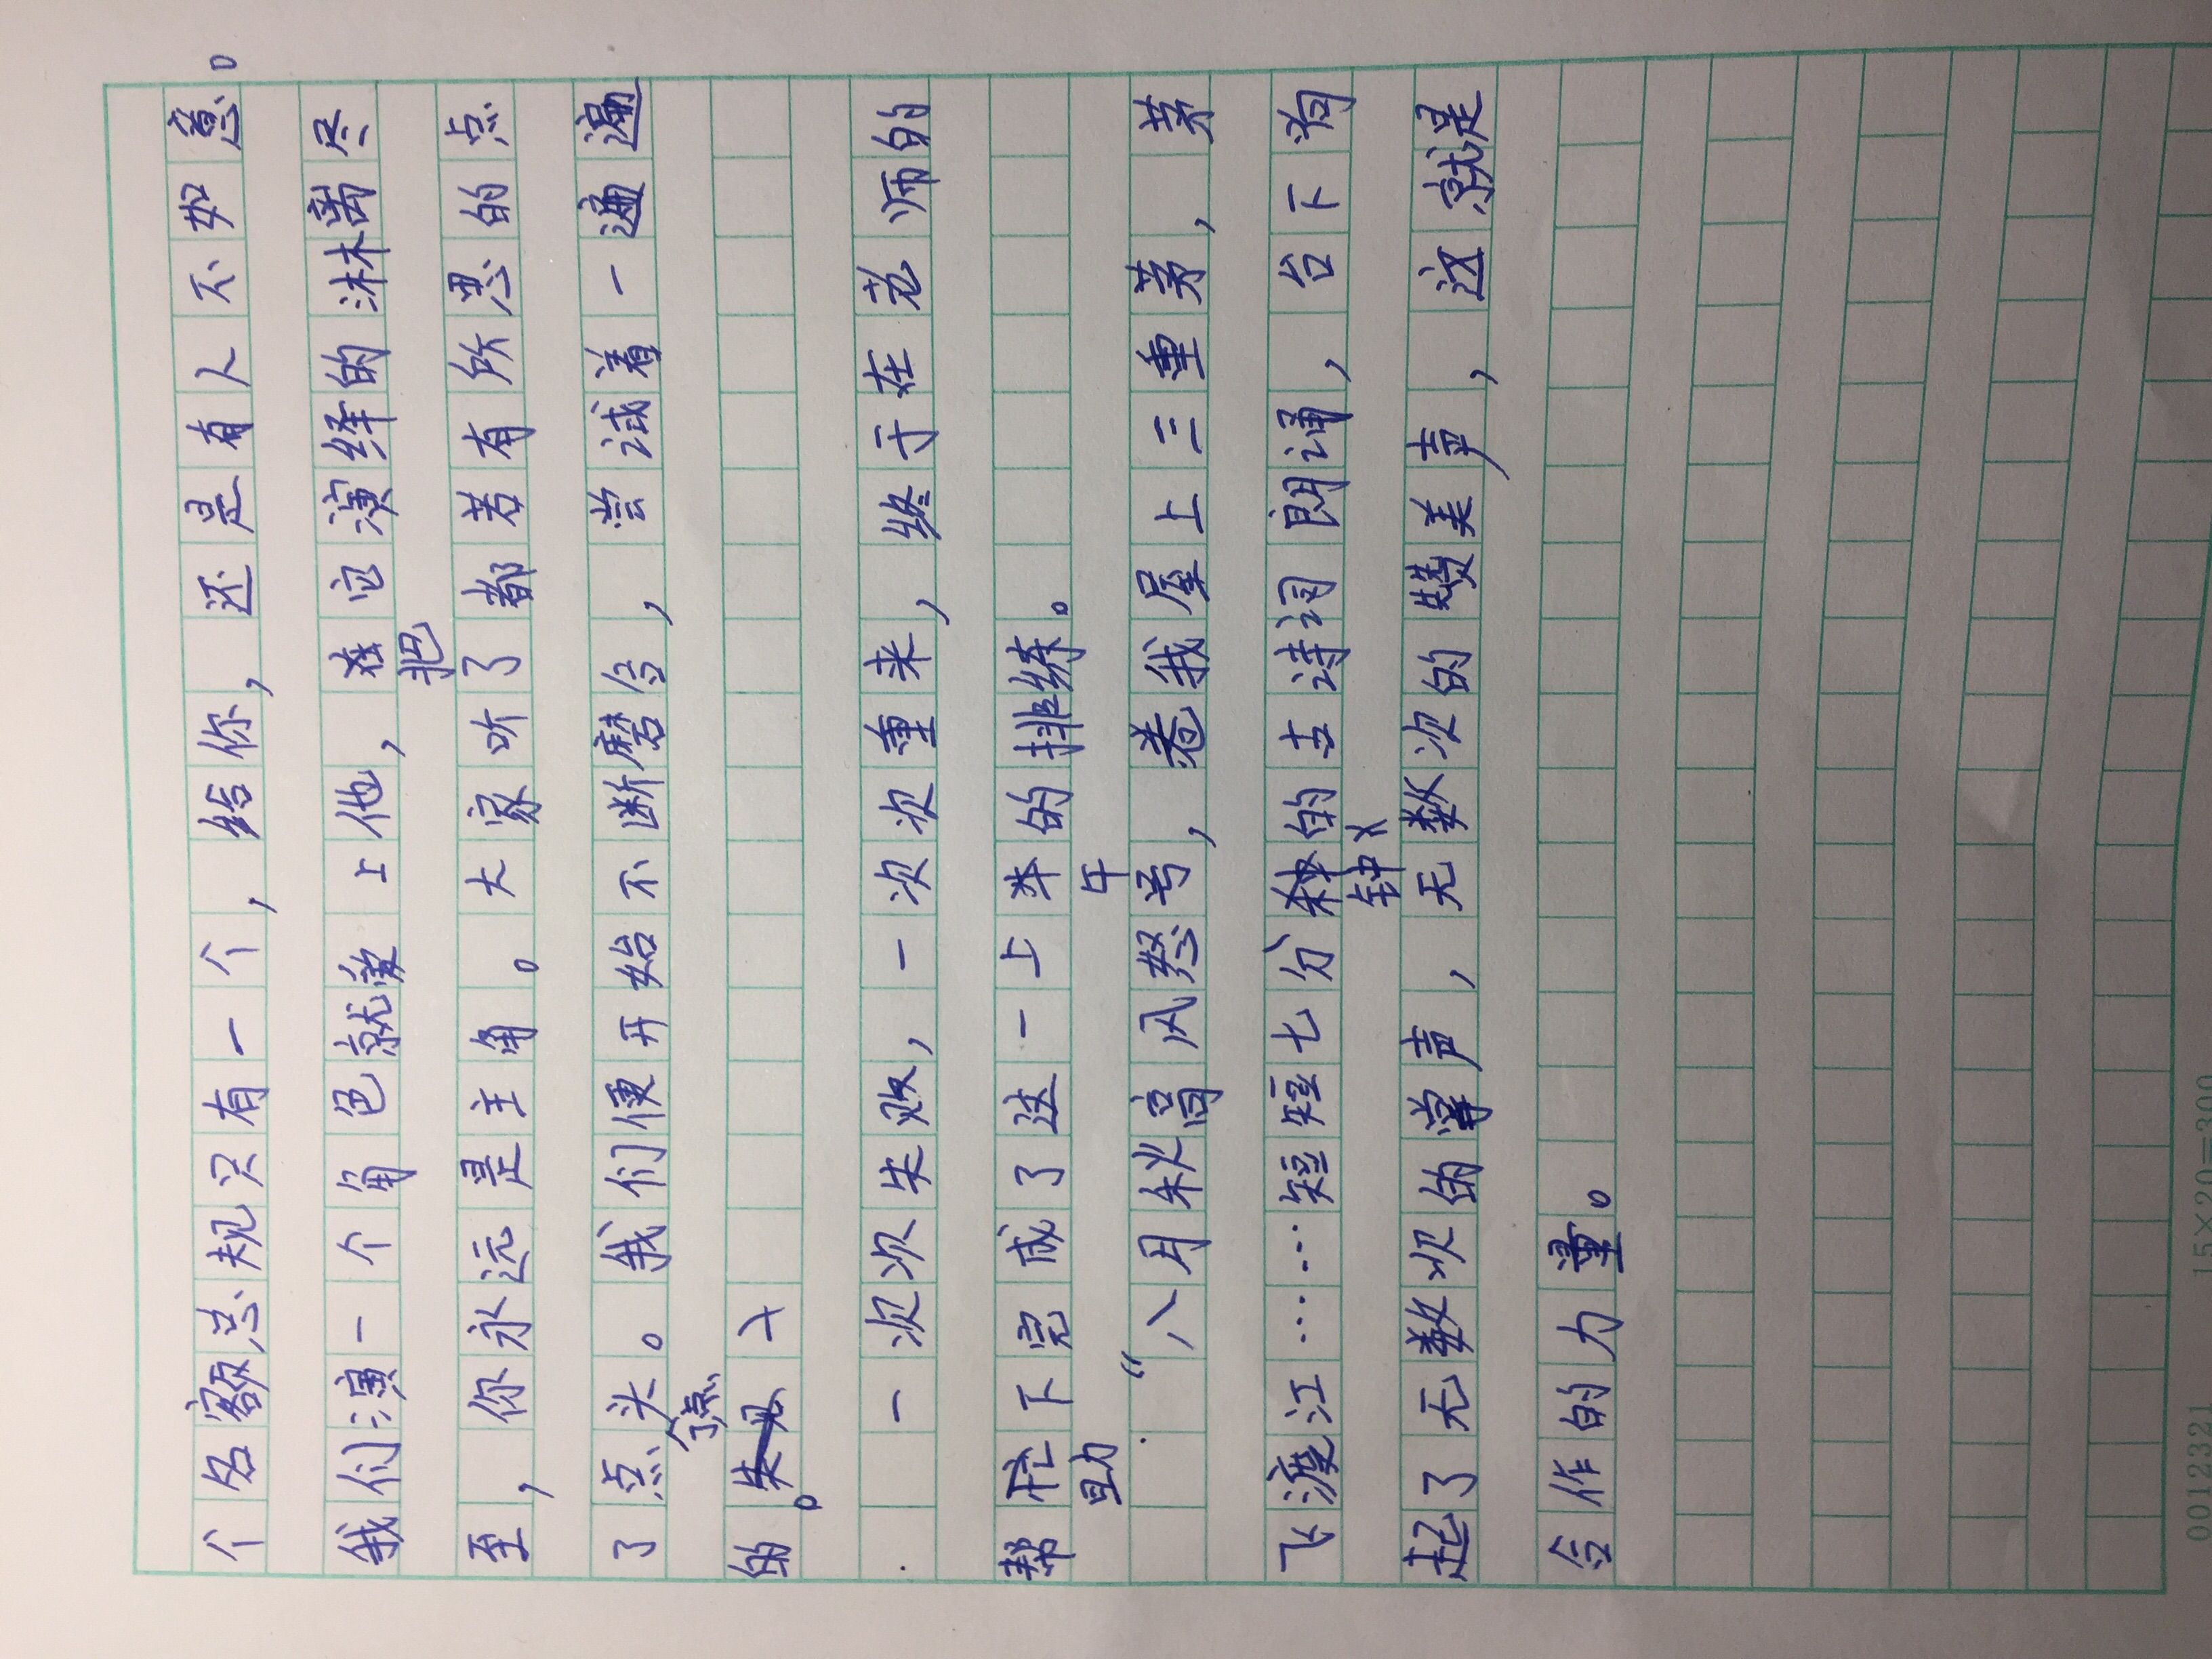 个名额总规只有一个,给你,还是有人不如意。
我们演一个角色就爱上他,把它演绎的淋漓尽
至,你永远是主角。大家听了都若有所思的点
了点头。我们便开始不断磨合,尝试着一遍遍
的
一次次失败,一次次重来,终于在老师的
帮助下完成了这一上午的排练。
“八月秋高风怒号,卷我屋上三重茅,茅
飞渡江……短短七分钟的古诗词朗诵,台下响
起了无数次的掌声,无数次的赞美声,这就是
合作的力量。
0012321 15×20=300